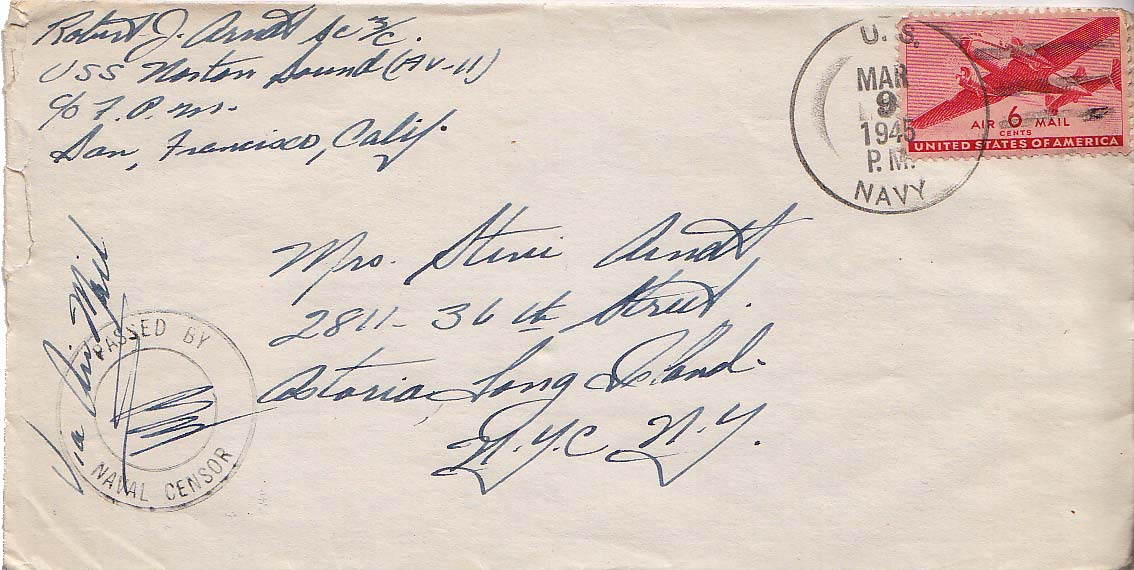 Robert J. Arndt SC 3/c.
USS Norton Sound (AV-11)
c/o F.P.M.
San, Francisco, Calif.
U. S.
MAR
9
1945
P.M.
NAVY
AIR 6 MAIL
CENTS
UNITED STATES OF AMERICA
Mrs. Steve Arndt
2811-36th Street.
Astoria, Long Island.
N.Y.C N.Y.
Via Air Mail
PASSED BY
NAVAL CENSOR